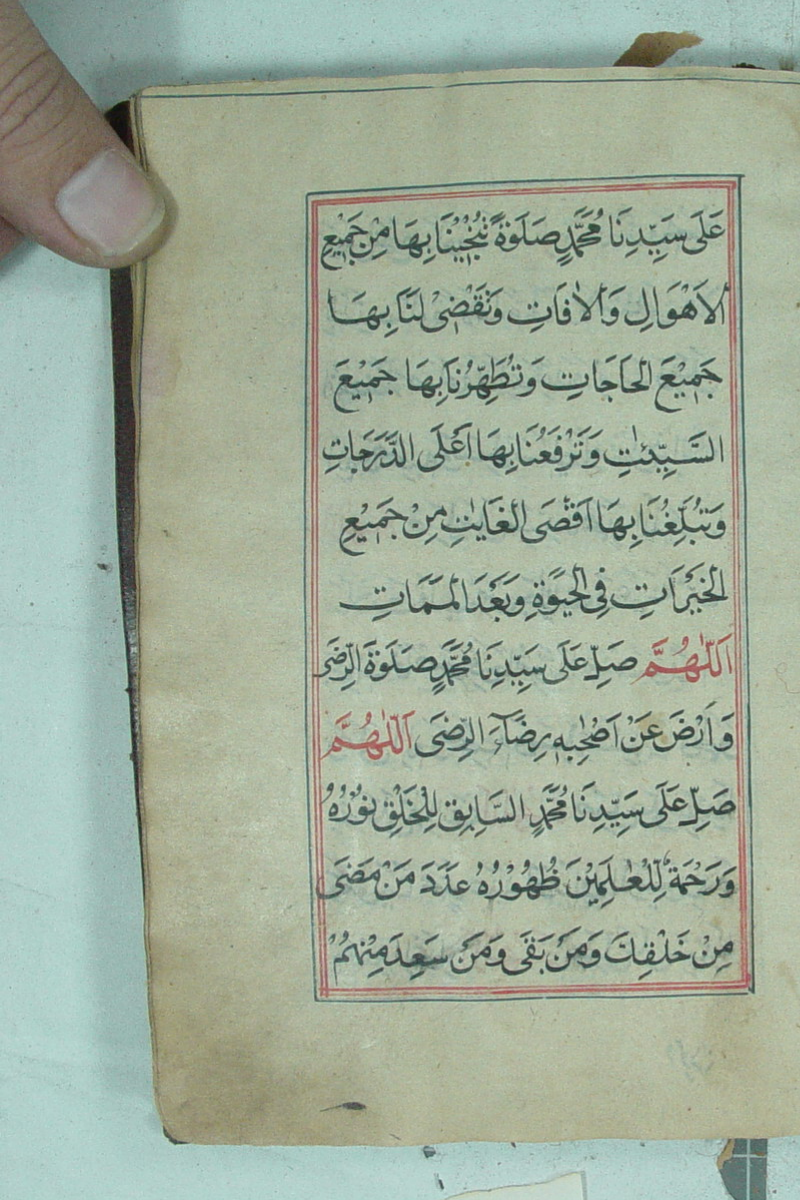 عَلَى سَيِّدِنَا مُحَمَّدٍ صَلَوٰةً تُنْجِيْنَا بِهَا مِنْ جَمِيْعِ
الْاَهْوَالِ وَالْاٰفَاتِ وَتَقْضِىْ لَنَا بِهَا
جَمِيْعَ الْحَاجَاتِ وَتُطَهِّرُنَا بِهَا جَمِيْعَ
السَّيِّئٰتِ وَتَرْفَعُنَا بِهَا اَعْلَى الدَّرَجَاتِ
وَتُبَلِّغُنَا بِهَا اَقْصَى الْغَايٰتِ مِنْ جَمِيْعِ
الْخَيْرَاتِ فِى الْحَيٰوةِ وَبَعْدَ الْمَمَاتِ
اَللّٰهُمَّ صَلِّ عَلَى سَيِّدِنَا مُحَمَّدٍ صَلَوٰةَ الرِّضَى
وَاَرْضَ عَنْ اَصْحٰبِهٖ رِضَآءَ الرِّضَى اَللّٰهُمَّ
صَلِّ عَلَى سَيِّدِنَا مُحَمَّدٍ السَّابِقِ لِلْخَلْقِ نُوْرُهُ
وَرَحْمَةٌ لِلْعٰلَمِيْنَ ظُهُوْرُهُ عَدَدَ مَنْ مَضَى
مِنْ خَلْقِكَ وَمَنْ بَقَى وَمَنْ سَعِدَ مِنْهُمْ